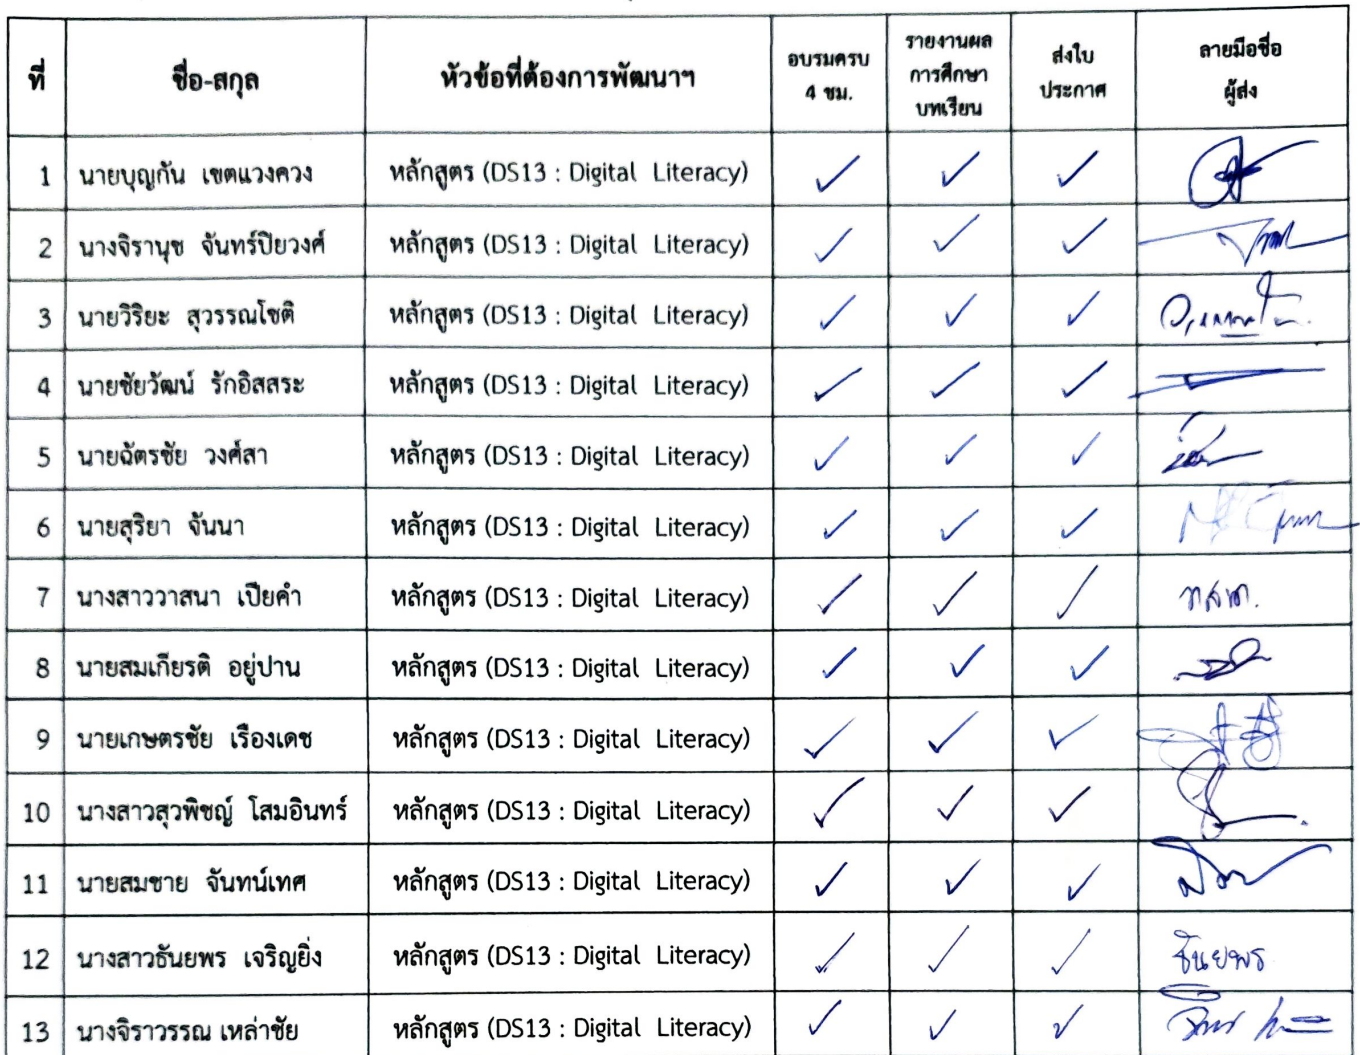 ที่ ชื่อ-สกุล หัวข้อที่ต้องการพัฒนาฯ อบรมครบ 4 ชม. รายงานผล การศึกษา บทเรียน ส่งใบ ประกาศ ลายมือชื่อ ผู้ส่ง
1 นายบุญกัน เขตแวงควง หลักสูตร (DS13 : Digital Literacy) ✓ ✓ ✓
2 นางจิรานุช จันทร์ปิยวงศ์ หลักสูตร (DS13 : Digital Literacy) ✓ ✓ ✓
3 นายวิริยะ สุวรรณโชติ หลักสูตร (DS13 : Digital Literacy) ✓ ✓ ✓
4 นายชัยวัฒน์ รักอิสสระ หลักสูตร (DS13 : Digital Literacy) ✓ ✓ ✓
5 นายฉัตรชัย วงศ์สา หลักสูตร (DS13 : Digital Literacy) ✓ ✓ ✓
6 นายสุริยา จันนา หลักสูตร (DS13 : Digital Literacy) ✓ ✓ ✓
7 นางสาววาสนา เปียคำ หลักสูตร (DS13 : Digital Literacy) ✓ ✓ ✓
8 นายสมเกียรติ อยู่ปาน หลักสูตร (DS13 : Digital Literacy) ✓ ✓ ✓
9 นายเกษตรชัย เรืองเดช หลักสูตร (DS13 : Digital Literacy) ✓ ✓ ✓
10 นางสาวสุวพิชญ์ โสมอินทร์ หลักสูตร (DS13 : Digital Literacy) ✓ ✓ ✓
11 นายสมชาย จันทน์เทศ หลักสูตร (DS13 : Digital Literacy) ✓ ✓ ✓
12 นางสาวธันยพร เจริญยิ่ง หลักสูตร (DS13 : Digital Literacy) ✓ ✓ ✓ ธันยพร
13 นางจิราวรรณ เหล่าชัย หลักสูตร (DS13 : Digital Literacy) ✓ ✓ ✓